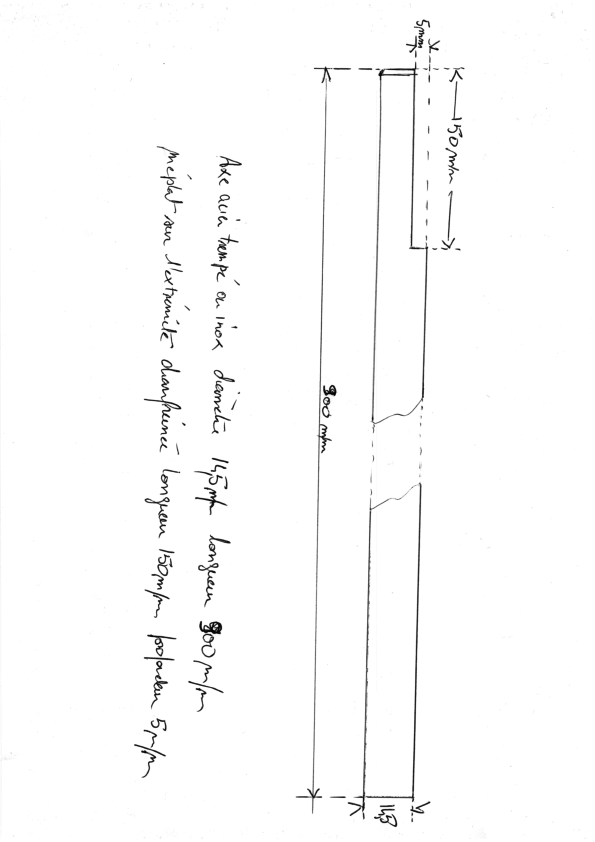 5mm
150 m/m
900 m/m
14,5
Axe acier trempé ou inox diamètre 14,5 m/m longueur 900 m/m
méplat sur l'extrémité chanfreinée longueur 150 m/m profondeur 5 m/m